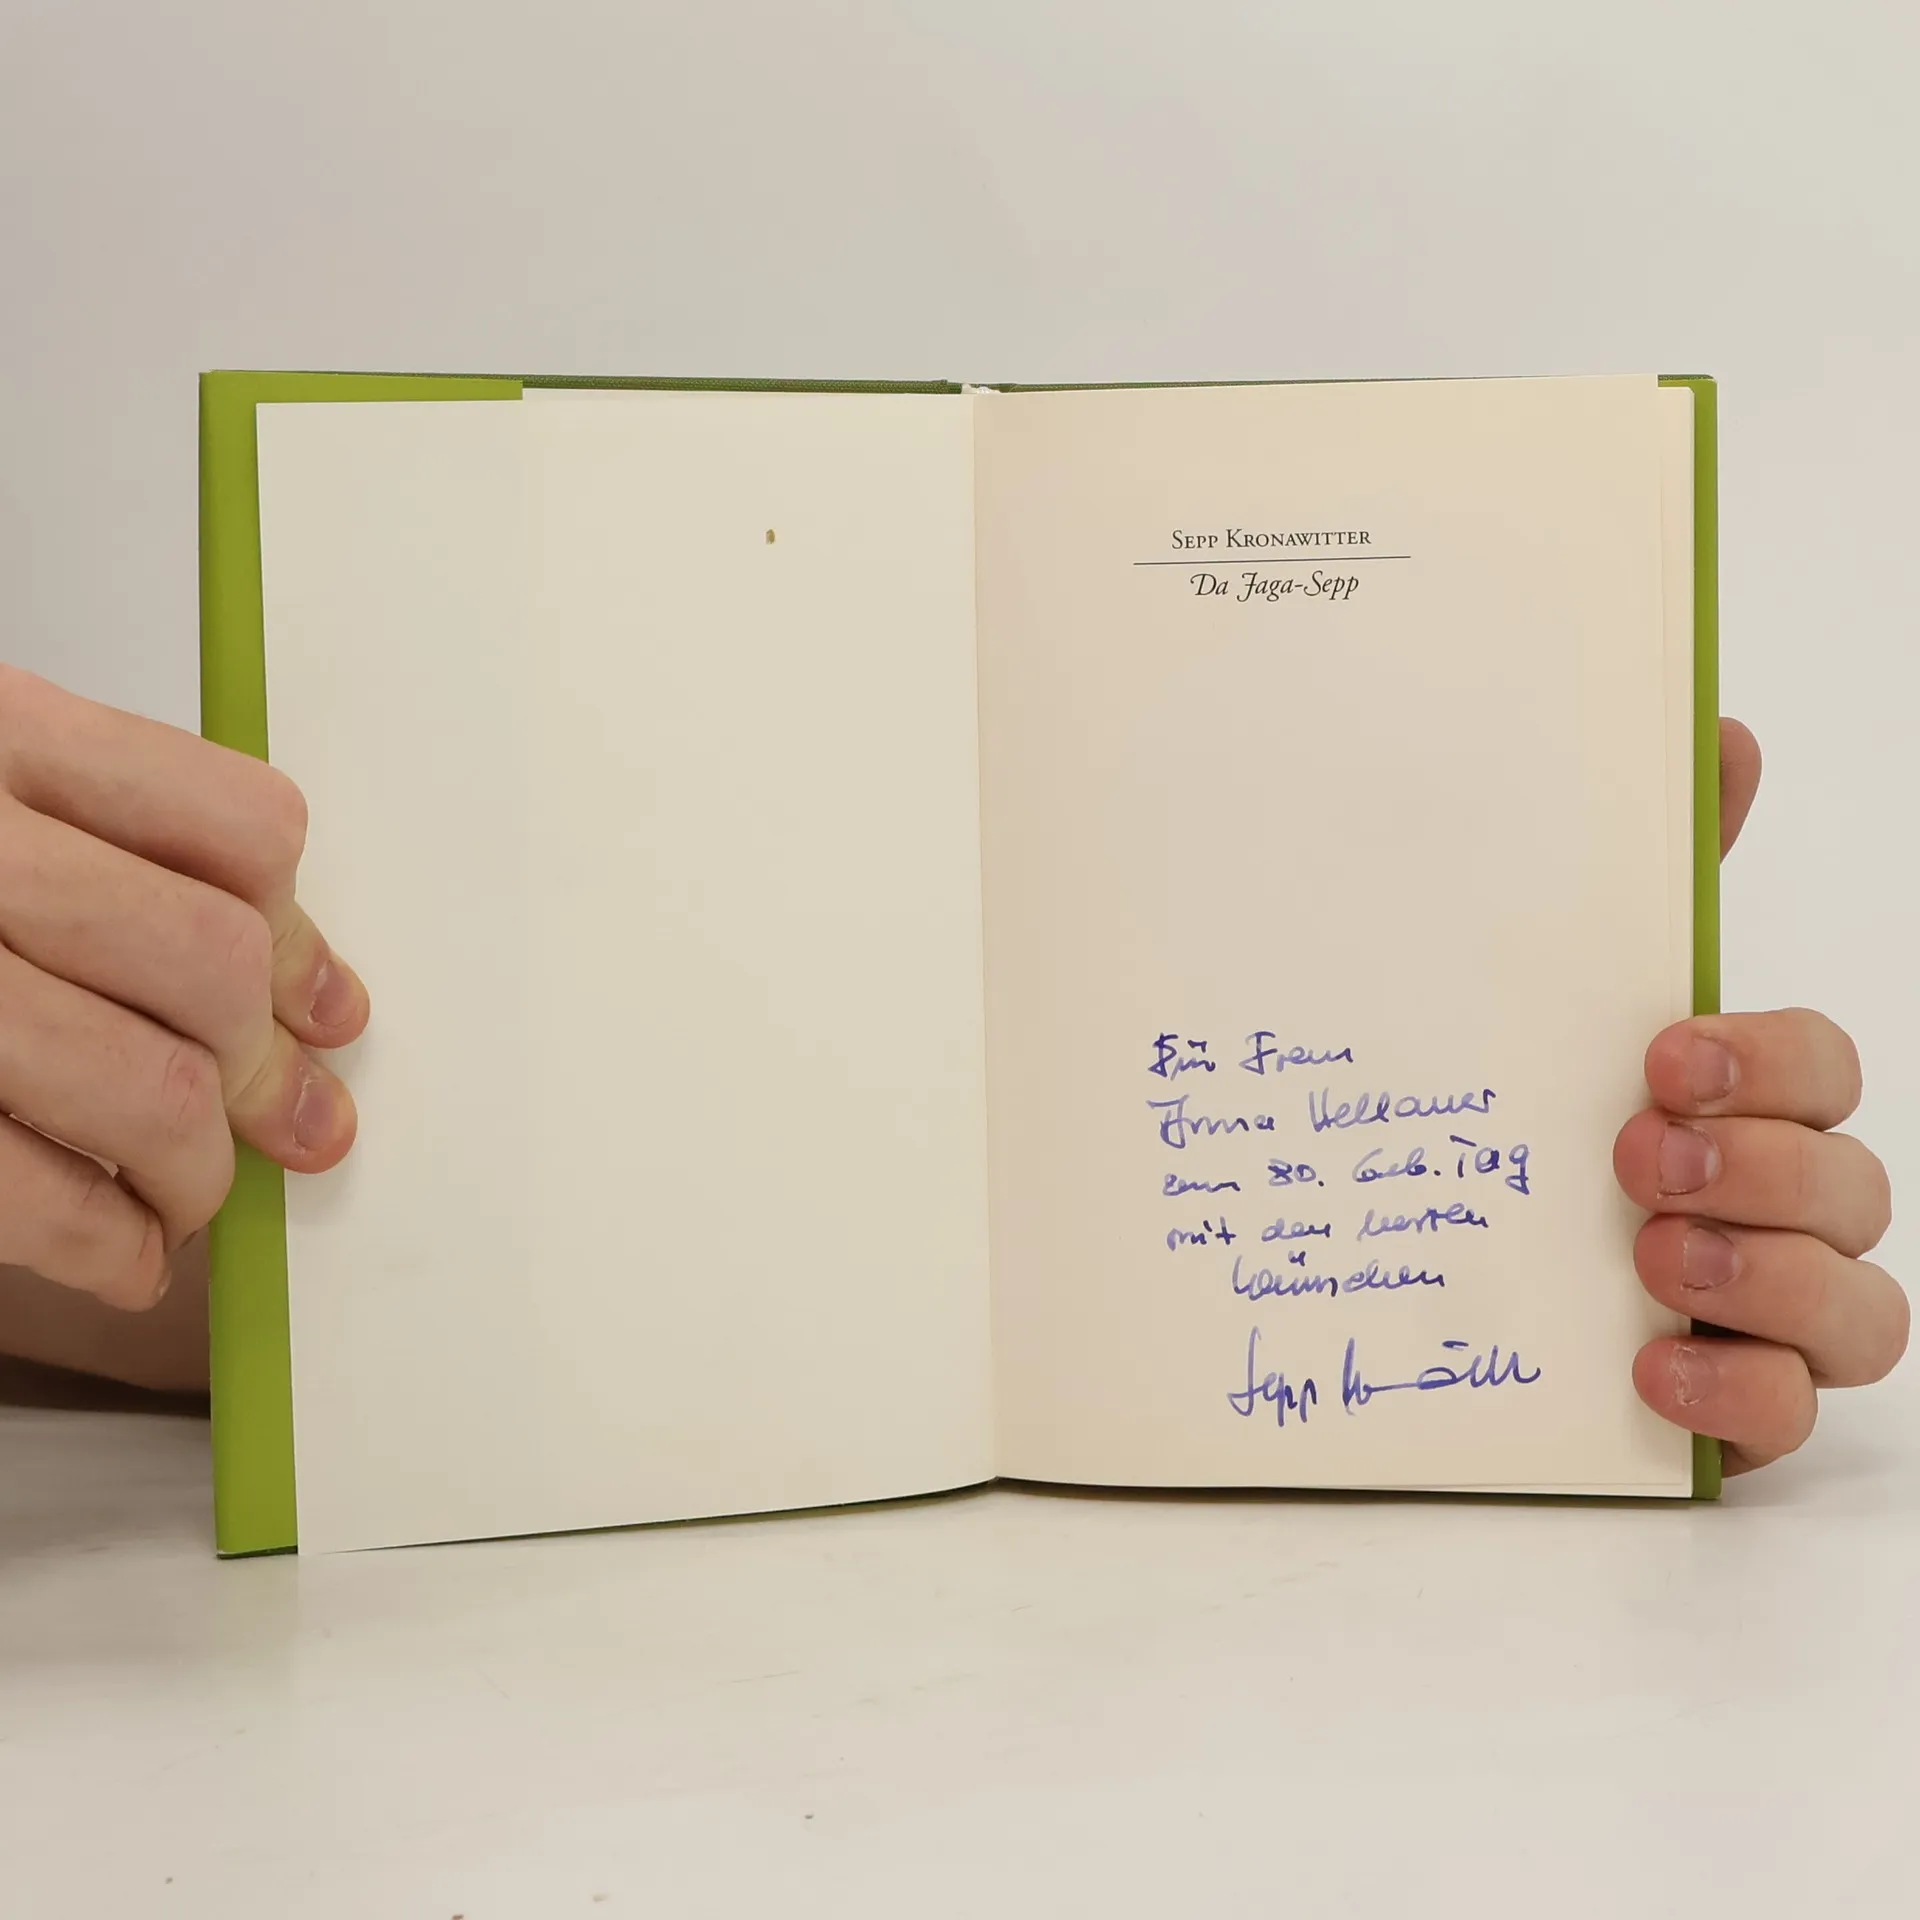 SEPP KRONAWITTER
Da Jaga-Sepp
Für Frau
Irma
zum 80. Geb. Tag
mit den besten
Wünschen
Sepp